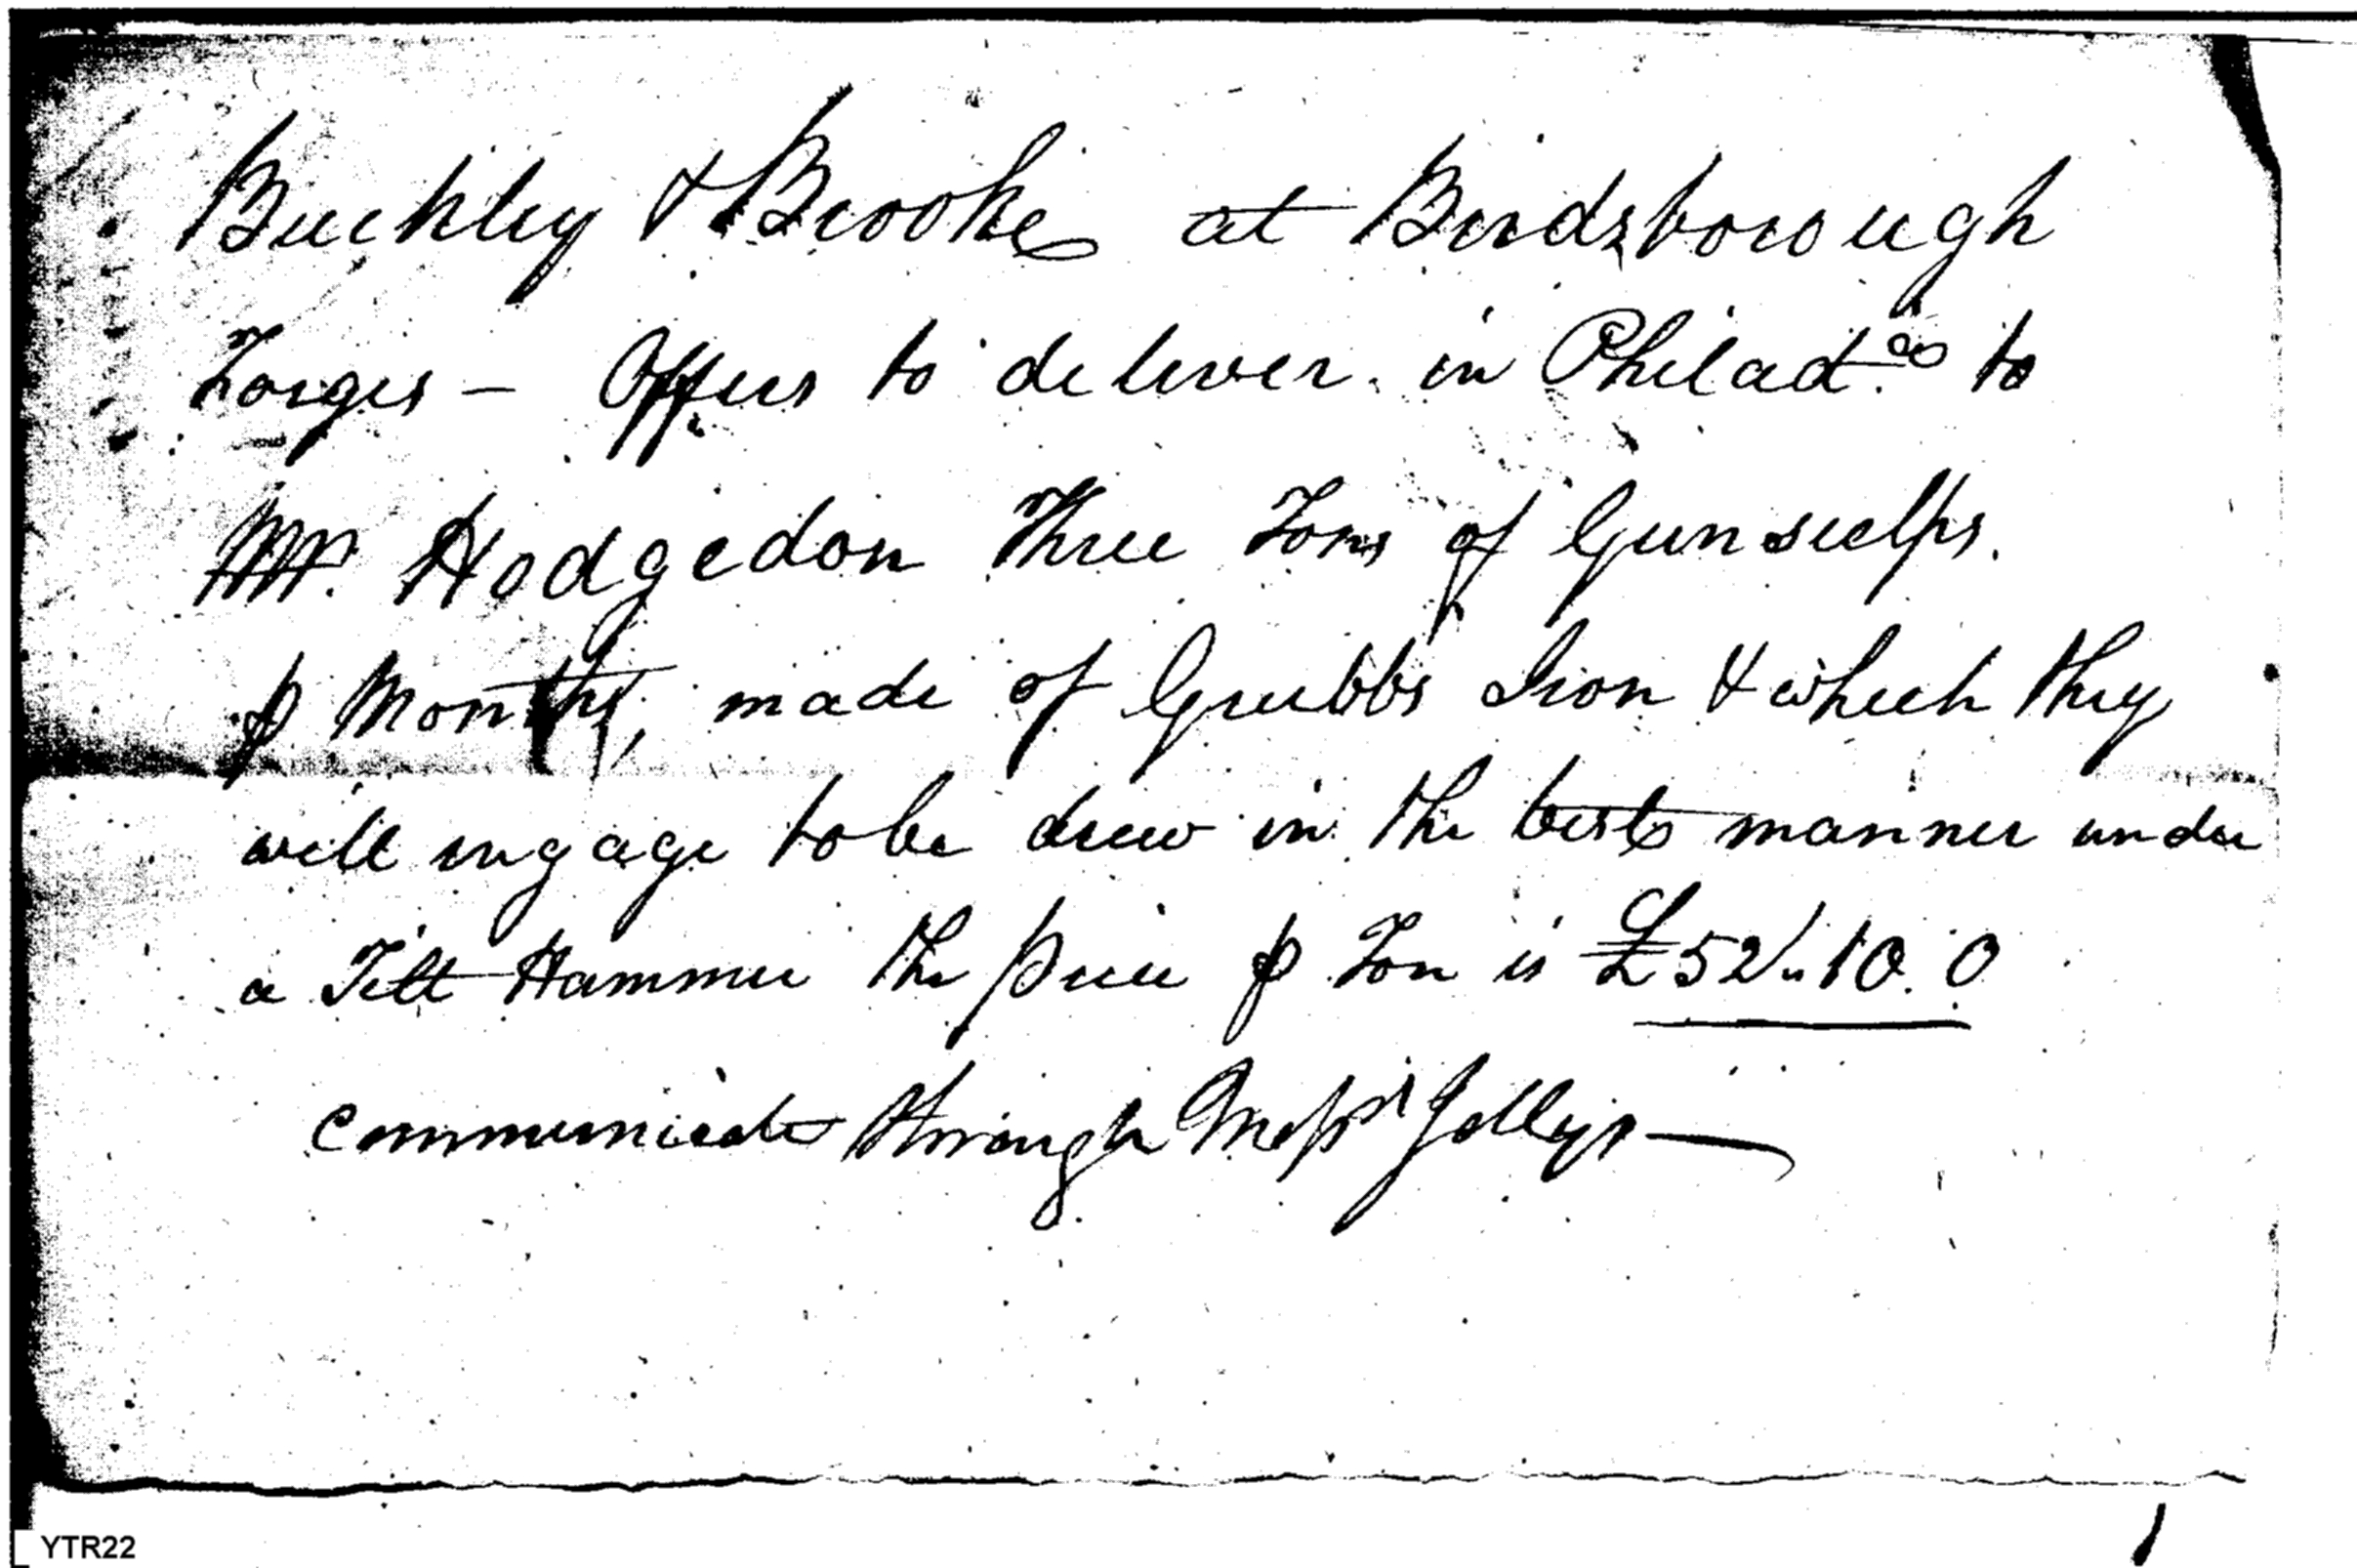 Buckley & Brooke at Birdsborough
Forges - Offers to deliver in Philad.a to
Mr. Hodgedon Three Tons of Gun scelps.
℔ Months, made of Grubbs Iron & which they
will engage to be drew in the best manner under
a Tilt Hammer the price ℔ Ton is £52,, 10. 0
communicate through Messrs Jollys
YTR22
1